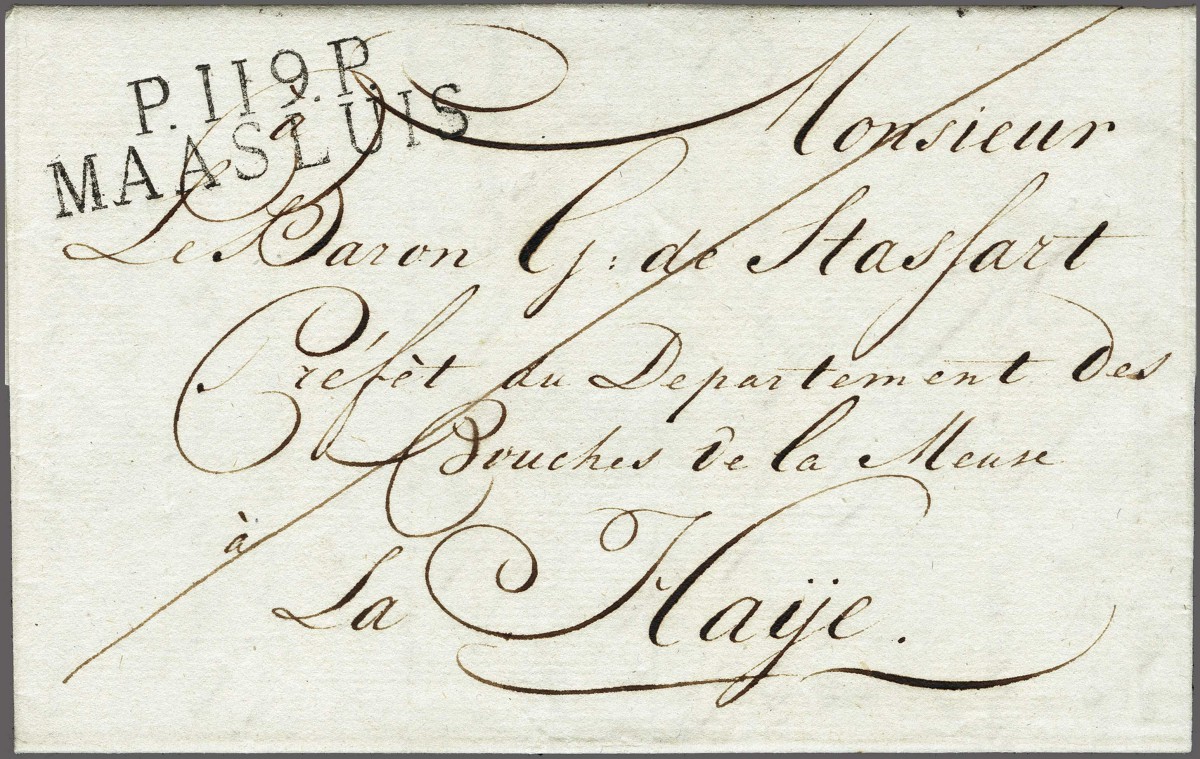 P.119.P.
MAASLUIS
à Monsieur
Le Baron G: de Stassart
Préfèt du Departement des
Bouches de la Meuse
à
La Haÿe.